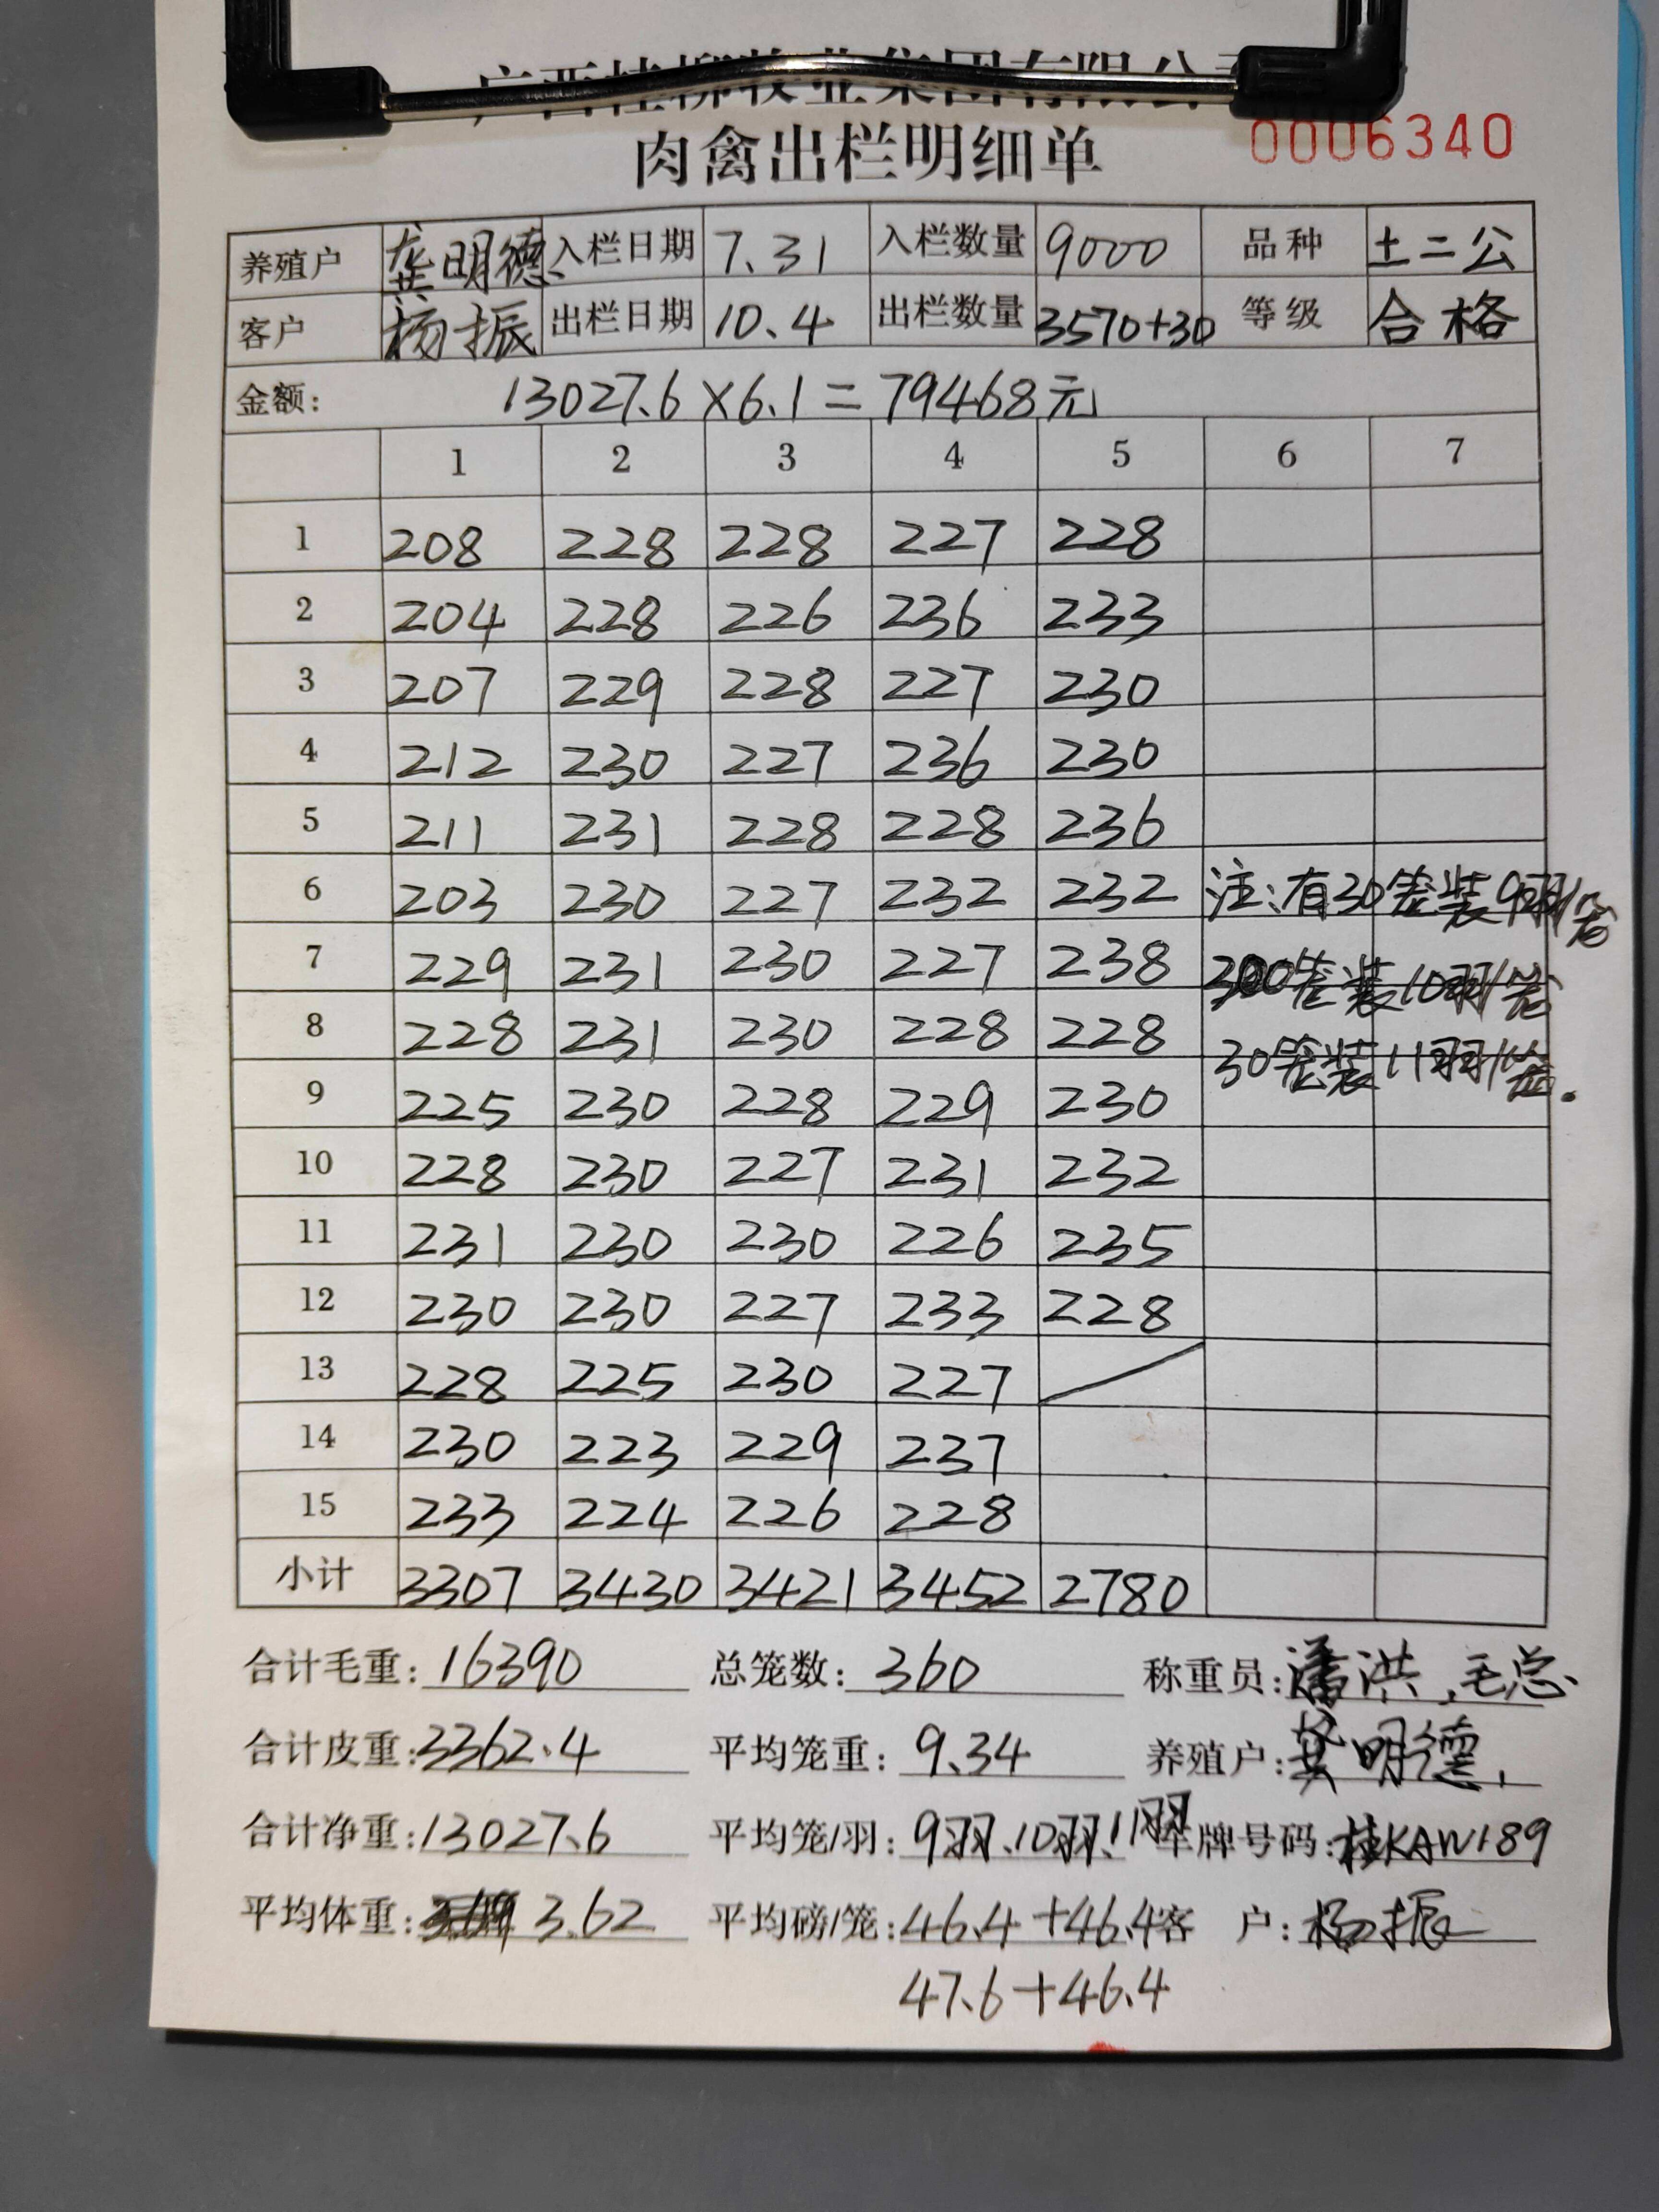 广西桂柳牧业集团有限公司
肉禽出栏明细单
0006340
养殖户 龚明德 入栏日期 7.31 入栏数量 9000 品种 土二公
客户 杨振 出栏日期 10.4 出栏数量 3570+30 等级 合格
金额: 13027.6×6.1=79468元
1 2 3 4 5 6 7
1 208 228 228 227 228
2 204 228 226 236 233
3 207 229 228 227 230
4 212 230 227 236 230
5 211 231 228 228 236
6 203 230 227 232 232 注:有30笼装9羽/笼
7 229 231 230 227 238 300笼装10羽/笼
8 228 231 230 228 228 30笼装11羽/笼.
9 225 230 228 229 230
10 228 230 227 231 232
11 231 230 230 226 235
12 230 230 227 233 228
13 228 225 230 227
14 230 223 229 237
15 233 224 226 228
小计 3307 3430 3421 3452 2780
合计毛重: 16390 总笼数: 360 称重员: 潘洪,毛总.
合计皮重: 3362.4 平均笼重: 9.34 养殖户: 龚明德,
合计净重: 13027.6 平均笼/羽: 9羽、10羽、11羽 车牌号码: 桂KAW189
平均体重: 3.62 平均磅/笼: 46.4+46.4 客 户: 杨振
47.6+46.4